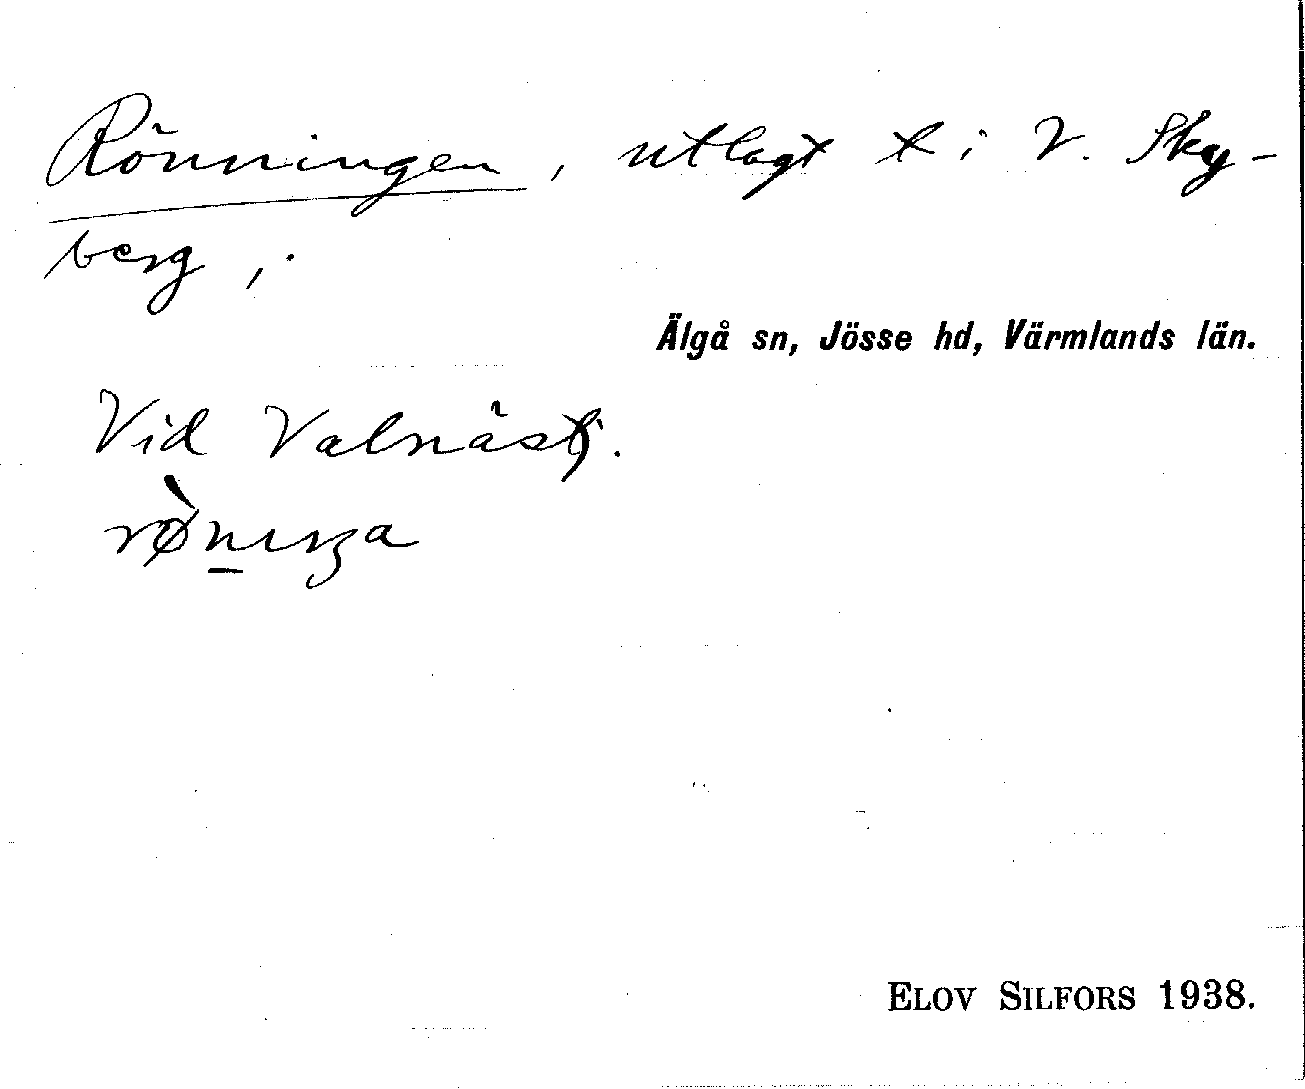 Rönningen, utlagt t i V. Sky-
berg,.
Älgå sn, Jösse hd, Värmlands län.
Vid Valnästj.
ELOV SILFORS 1938.